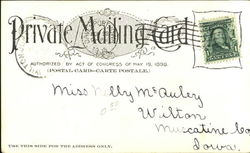 Private Mailing Card
AUTHORIZED BY ACT OF CONGRESS OF MAY 19, 1898.
(POSTAL CARD-CARTE POSTALE.)
Miss Nelly McAuley
Wilton
Muscatine Co
Iowa.
USE THIS SIDE FOR THE ADDRESS ONLY.